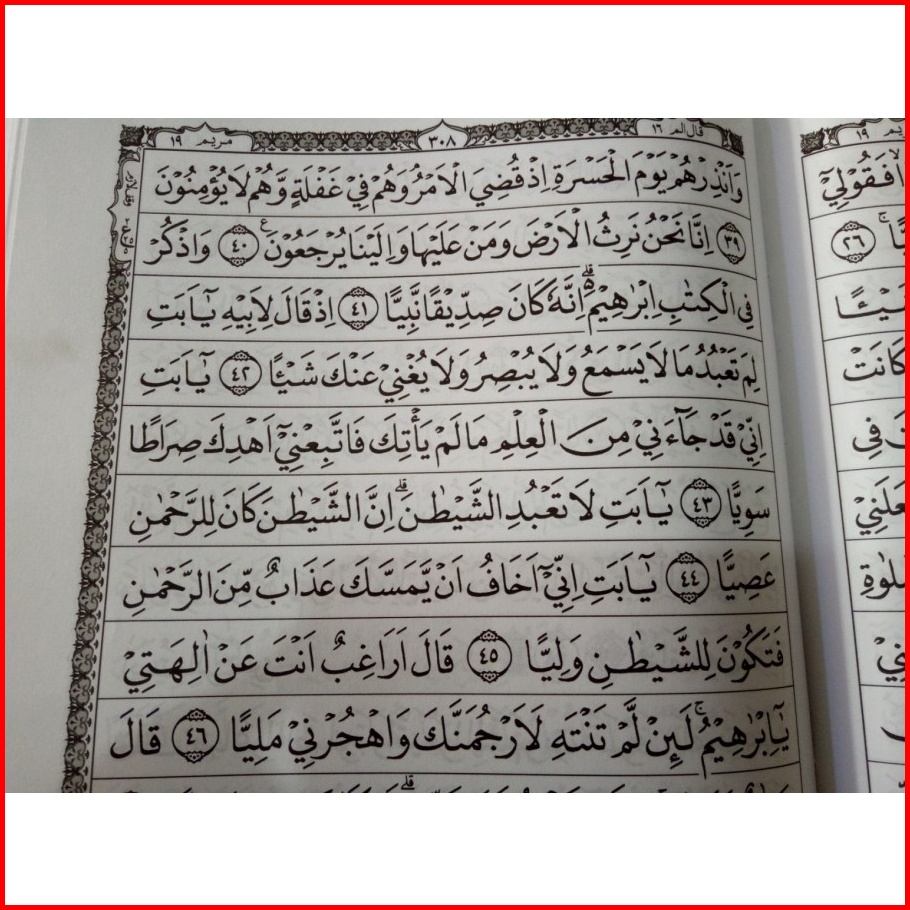 قال الم ١٦
٣٠٨
مريم ١٩
وَاَنْذِرْهُمْ يَوْمَ الْحَسْرَةِ اِذْ قُضِيَ الْاَمْرُ وَهُمْ فِيْ غَفْلَةٍ وَّهُمْ لَا يُؤْمِنُوْنَ
٣٩ اِنَّا نَحْنُ نَرِثُ الْاَرْضَ وَمَنْ عَلَيْهَا وَاِلَيْنَا يُرْجَعُوْنَ ࣖ ٤٠ وَاذْكُرْ
فِى الْكِتٰبِ اِبْرٰهِيْمَ ەۗ اِنَّهٗ كَانَ صِدِّيْقًا نَّبِيًّا ٤١ اِذْ قَالَ لِاَبِيْهِ يٰٓاَبَتِ
لِمَ تَعْبُدُ مَا لَا يَسْمَعُ وَلَا يُبْصِرُ وَلَا يُغْنِيْ عَنْكَ شَيْـًٔا ٤٢ يٰٓاَبَتِ
اِنِّيْ قَدْ جَاۤءَنِيْ مِنَ الْعِلْمِ مَا لَمْ يَأْتِكَ فَاتَّبِعْنِيْٓ اَهْدِكَ صِرَاطًا
سَوِيًّا ٤٣ يٰٓاَبَتِ لَا تَعْبُدِ الشَّيْطٰنَۗ اِنَّ الشَّيْطٰنَ كَانَ لِلرَّحْمٰنِ
عَصِيًّا ٤٤ يٰٓاَبَتِ اِنِّيْٓ اَخَافُ اَنْ يَّمَسَّكَ عَذَابٌ مِّنَ الرَّحْمٰنِ
فَتَكُوْنَ لِلشَّيْطٰنِ وَلِيًّا ٤٥ قَالَ اَرَاغِبٌ اَنْتَ عَنْ اٰلِهَتِيْ
يٰٓاِبْرٰهِيْمُۚ لَىِٕنْ لَّمْ تَنْتَهِ لَاَرْجُمَنَّكَ وَاهْجُرْنِيْ مَلِيًّا ٤٦ قَالَ
١٩
فَقُوْلِيْٓ
٢٦
شَيْـًٔا
كَانَتْ
فِى